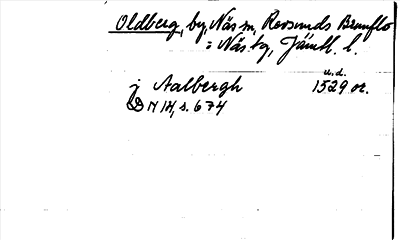 Oldberg, by, Näs sn, Revsunds Brunflo
= Näs tg, Jämtl. l.
u.d.
j Aalbergh 1529 or.
DN IH, s. 674